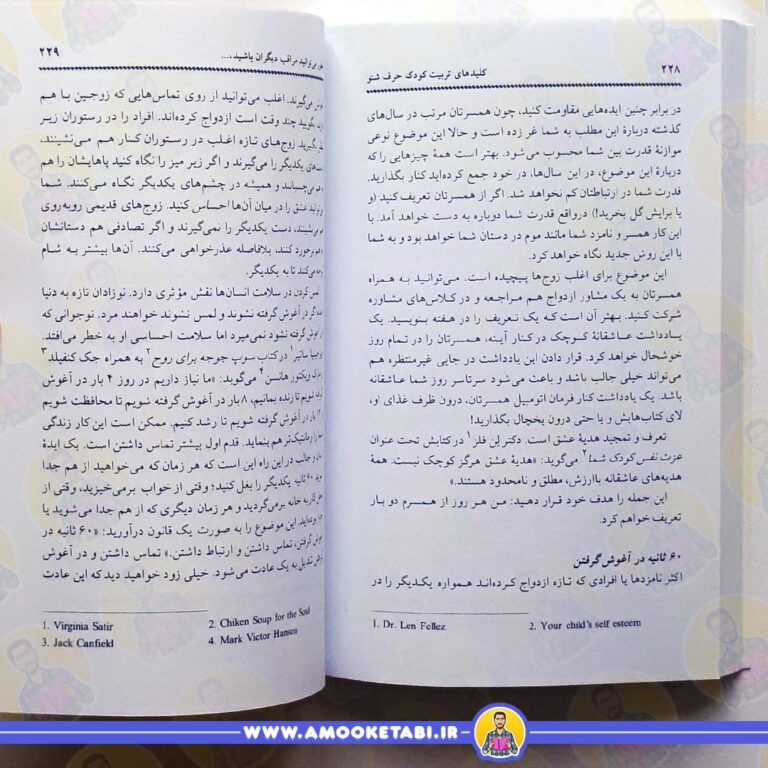 ۲۲۸
کلیدهای تربیت کودک حرف شنو
در برابر چنین ایده‌هایی مقاومت کنید، چون همسرتان مرتب در سال‌های
گذشته دربارهٔ این مطلب به شما غر زده است و حالا این موضوع نوعی
موازنهٔ قدرت بین شما محسوب می‌شود. بهتر است همهٔ چیزهایی را که
دربارهٔ این موضوع، در این سال‌ها، در خود جمع کرده‌اید کنار بگذارید.
قدرت شما در ارتباطتان کم نخواهد شد. اگر از همسرتان تعریف کنید (و
یا برایش گل بخرید!) درواقع قدرت شما دوباره به دست خواهد آمد. با
این کار همسر و نامزد شما مانند موم در دستان شما خواهد بود و به شما
با این روش جدید نگاه خواهد کرد.
این موضوع برای اغلب زوج‌ها پیچیده است. می‌توانید به همراه
همسرتان به یک مشاور ازدواج هم مراجعه و در کلاس‌های مشاوره
شرکت کنید. بهتر آن است که یک تعریف را در هفته بنویسید. یک
یادداشت عاشقانهٔ کوچک در کنار آینه، همسرتان را در تمام روز
خوشحال خواهد کرد. قرار دادن این یادداشت در جایی غیرمنتظره هم
می‌تواند خیلی جالب باشد و باعث می‌شود سرتاسر روز شما عاشقانه
باشد. یک یادداشت کنار فرمان اتومبیل همسرتان، درون ظرف غذای او،
لای کتاب‌هایش و یا حتی درون یخچال بگذارید!
تعرف و تمجید هدیهٔ عشق است. دکتر لن فلز ۱ در کتابش تحت عنوان
عزت نفس کودک شما ۲ می‌گوید: «هدیهٔ عشق هرگز کوچک نیست. همهٔ
هدیه‌های عاشقانه باارزش، مطلق و نامحدود هستند.»
این جمله را هدف خود قرار دهید: من هر روز از همسرم دو بار
تعریف خواهم کرد.
۶۰ ثانیه در آغوش گرفتن
اکثر نامزدها یا افرادی که تازه ازدواج کرده‌اند همواره یکدیگر را در
1. Dr. Len Fellez 2. Your child's self esteem
۲۲۹
می‌توانید مراقب دیگران باشید،...
می‌گیرند. اغلب می‌توانید از روی تماس‌هایی که زوجین با هم
بگویید چند وقت است ازدواج کرده‌اند. افراد را در رستوران زیر
بگیرید. زوج‌های تازه اغلب در رستوران کنار هم می‌نشینند،
یکدیگر را می‌گیرند و اگر زیر میز را نگاه کنید پاهایشان را هم
می‌چسبانند و همیشه در چشم‌های یکدیگر نگاه می‌کنند. شما
عشق را در میان آن‌ها احساس کنید. زوج‌های قدیمی روبه‌روی
می‌نشینند، دست یکدیگر را نمی‌گیرند و اگر تصادفی هم دستانشان
برخورد کنند، بلافاصله عذرخواهی می‌کنند. آن‌ها بیشتر به شام
می‌کنند تا به یکدیگر.
لمس کردن در سلامت انسان‌ها نقش مؤثری دارد. نوزادان تازه به دنیا
در آغوش گرفته نشوند و لمس نشوند خواهند مرد. نوجوانی که
آغوش گرفته نشود نمی‌میرد اما سلامت احساسی او به خطر می‌افتد.
ساتیر ۱ در کتاب سوپ جوجه برای روح ۲ به همراه جک کنفیلد ۳
ویکتور هانسن ۴ می‌گوید: «ما نیاز داریم در روز ۴ بار در آغوش
شویم تا زنده بمانیم، ۸ بار در آغوش گرفته شویم تا محافظت شویم
بار در آغوش گرفته شویم تا رشد کنیم. ممکن است این کار زندگی
را رمانتیک‌تر هم بنماید. قدم اول بیشتر تماس داشتن است. یک ایدهٔ
و جالب در این راه این است که هر زمان که می‌خواهید از هم جدا
۶۰ ثانیه یکدیگر را بغل کنید؛ وقتی از خواب برمی‌خیزید، وقتی از
به خانه برمی‌گردید و هر زمان دیگری که از هم جدا می‌شوید یا
بوده‌اید. این موضوع را به صورت یک قانون درآورید: «۶۰ ثانیه در
گرفتن، تماس داشتن و ارتباط داشتن.» تماس داشتن و در آغوش
تبدیل به یک عادت می‌شود. خیلی زود خواهید دید که این عادت
1. Virginia Satir 2. Chiken Soup for the Soul
3. Jack Canfield 4. Mark Victor Hansen
WWW.AMOOKETABI.IR